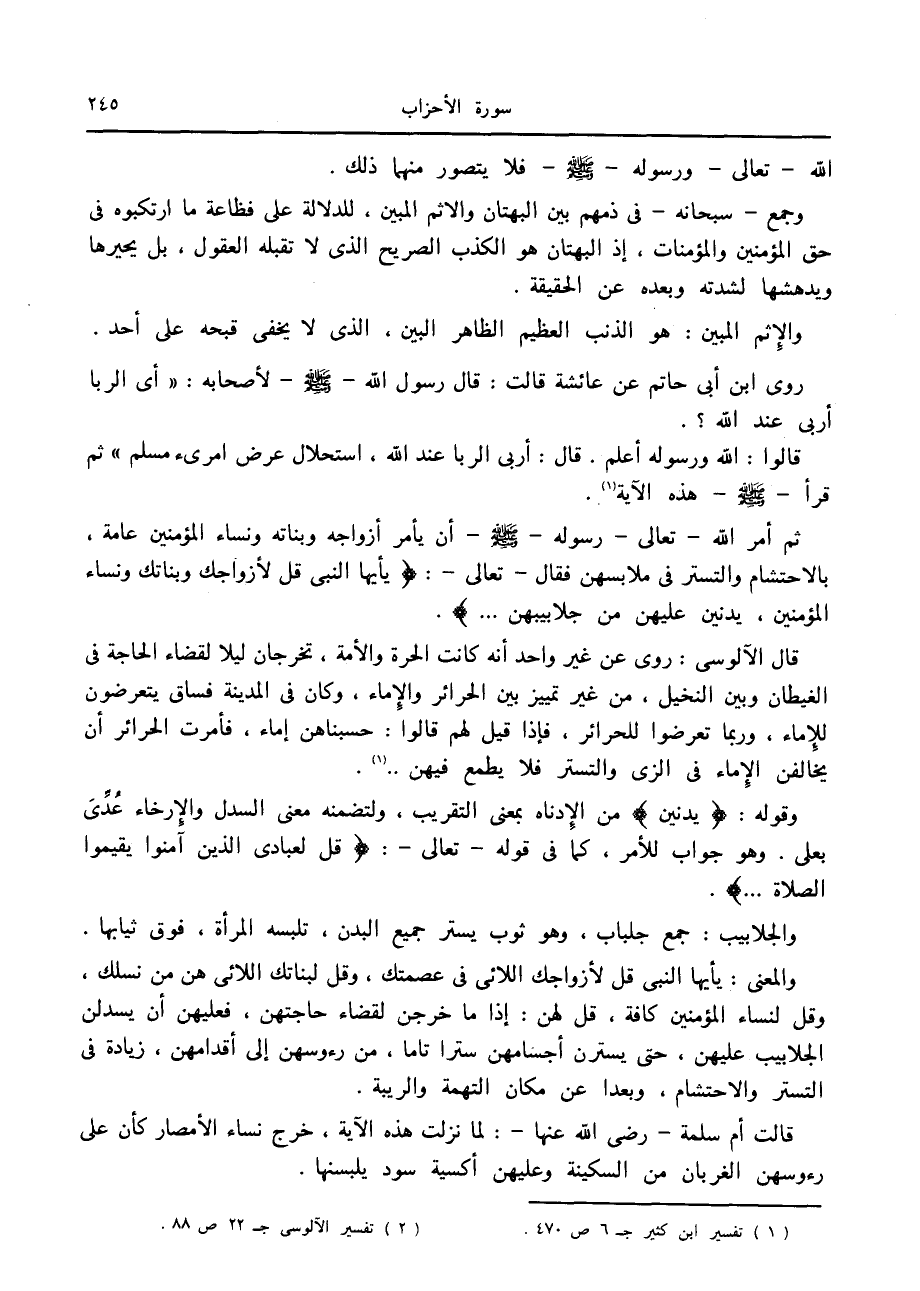 سورة الأحزاب ٢٤٥
الله – تعالى – ورسوله – ﷺ – فلا يتصور منهما ذلك .
وجمع – سبحانه – فى ذمهم بين البهتان والاثم المبين ، للدلالة على فظاعة ما ارتكبوه فى
حق المؤمنين والمؤمنات ، إذ البهتان هو الكذب الصريح الذى لا تقبله العقول ، بل يحيرها
ويدهشها لشدته وبعده عن الحقيقة .
والإثم المبين : هو الذنب العظيم الظاهر البين ، الذى لا يخفى قبحه على أحد .
روى ابن أبى حاتم عن عائشة قالت : قال رسول الله – ﷺ – لأصحابه : « أى الربا
أربى عند الله ؟ .
قالوا : الله ورسوله أعلم . قال : أربى الربا عند الله ، استحلال عرض امرىء مسلم » ثم
قرأ – ﷺ – هذه الآية(١) .
ثم أمر الله – تعالى – رسوله – ﷺ – أن يأمر أزواجه وبناته ونساء المؤمنين عامة ،
بالاحتشام والتستر فى ملابسهن فقال – تعالى – : ﴿ يأيها النبى قل لأزواجك وبناتك ونساء
المؤمنين ، يدنين عليهن من جلابيبهن ... ﴾ .
قال الآلوسى : روى عن غير واحد أنه كانت الحرة والأمة ، تخرجان ليلا لقضاء الحاجة فى
الغيطان وبين النخيل ، من غير تمييز بين الحرائر والإماء ، وكان فى المدينة فساق يتعرضون
للإماء ، وربما تعرضوا للحرائر ، فإذا قيل لهم قالوا : حسبناهن إماء ، فأمرت الحرائر أن
يخالفن الإماء فى الزى والتستر فلا يطمع فيهن ..(١) .
وقوله : ﴿ يدنين ﴾ من الإدناه بمعنى التقريب ، ولتضمنه معنى السدل والإرخاء عُدِّىَ
بعلى . وهو جواب للأمر ، كما فى قوله – تعالى – : ﴿ قل لعبادى الذين آمنوا يقيموا
الصلاة ...﴾ .
والجلابيب : جمع جلباب ، وهو ثوب يستر جميع البدن ، تلبسه المرأة ، فوق ثيابها .
والمعنى : يأيها النبى قل لأزواجك اللائى فى عصمتك ، وقل لبناتك اللائى هن من نسلك ،
وقل لنساء المؤمنين كافة ، قل لهن : إذا ما خرجن لقضاء حاجتهن ، فعليهن أن يسدلن
الجلابيب عليهن ، حتى يسترن أجسامهن سترا تاما ، من رءوسهن إلى أقدامهن ، زيادة فى
التستر والاحتشام ، وبعدا عن مكان التهمة والريبة .
قالت أم سلمة – رضى الله عنها – : لما نزلت هذه الآية ، خرج نساء الأمصار كأن على
رءوسهن الغربان من السكينة وعليهن أكسية سود يلبسنها .
( ١ ) تفسير ابن كثير جـ ٦ ص ٤٧٠ . ( ٢ ) تفسير الآلوسى جـ ٢٢ ص ٨٨ .